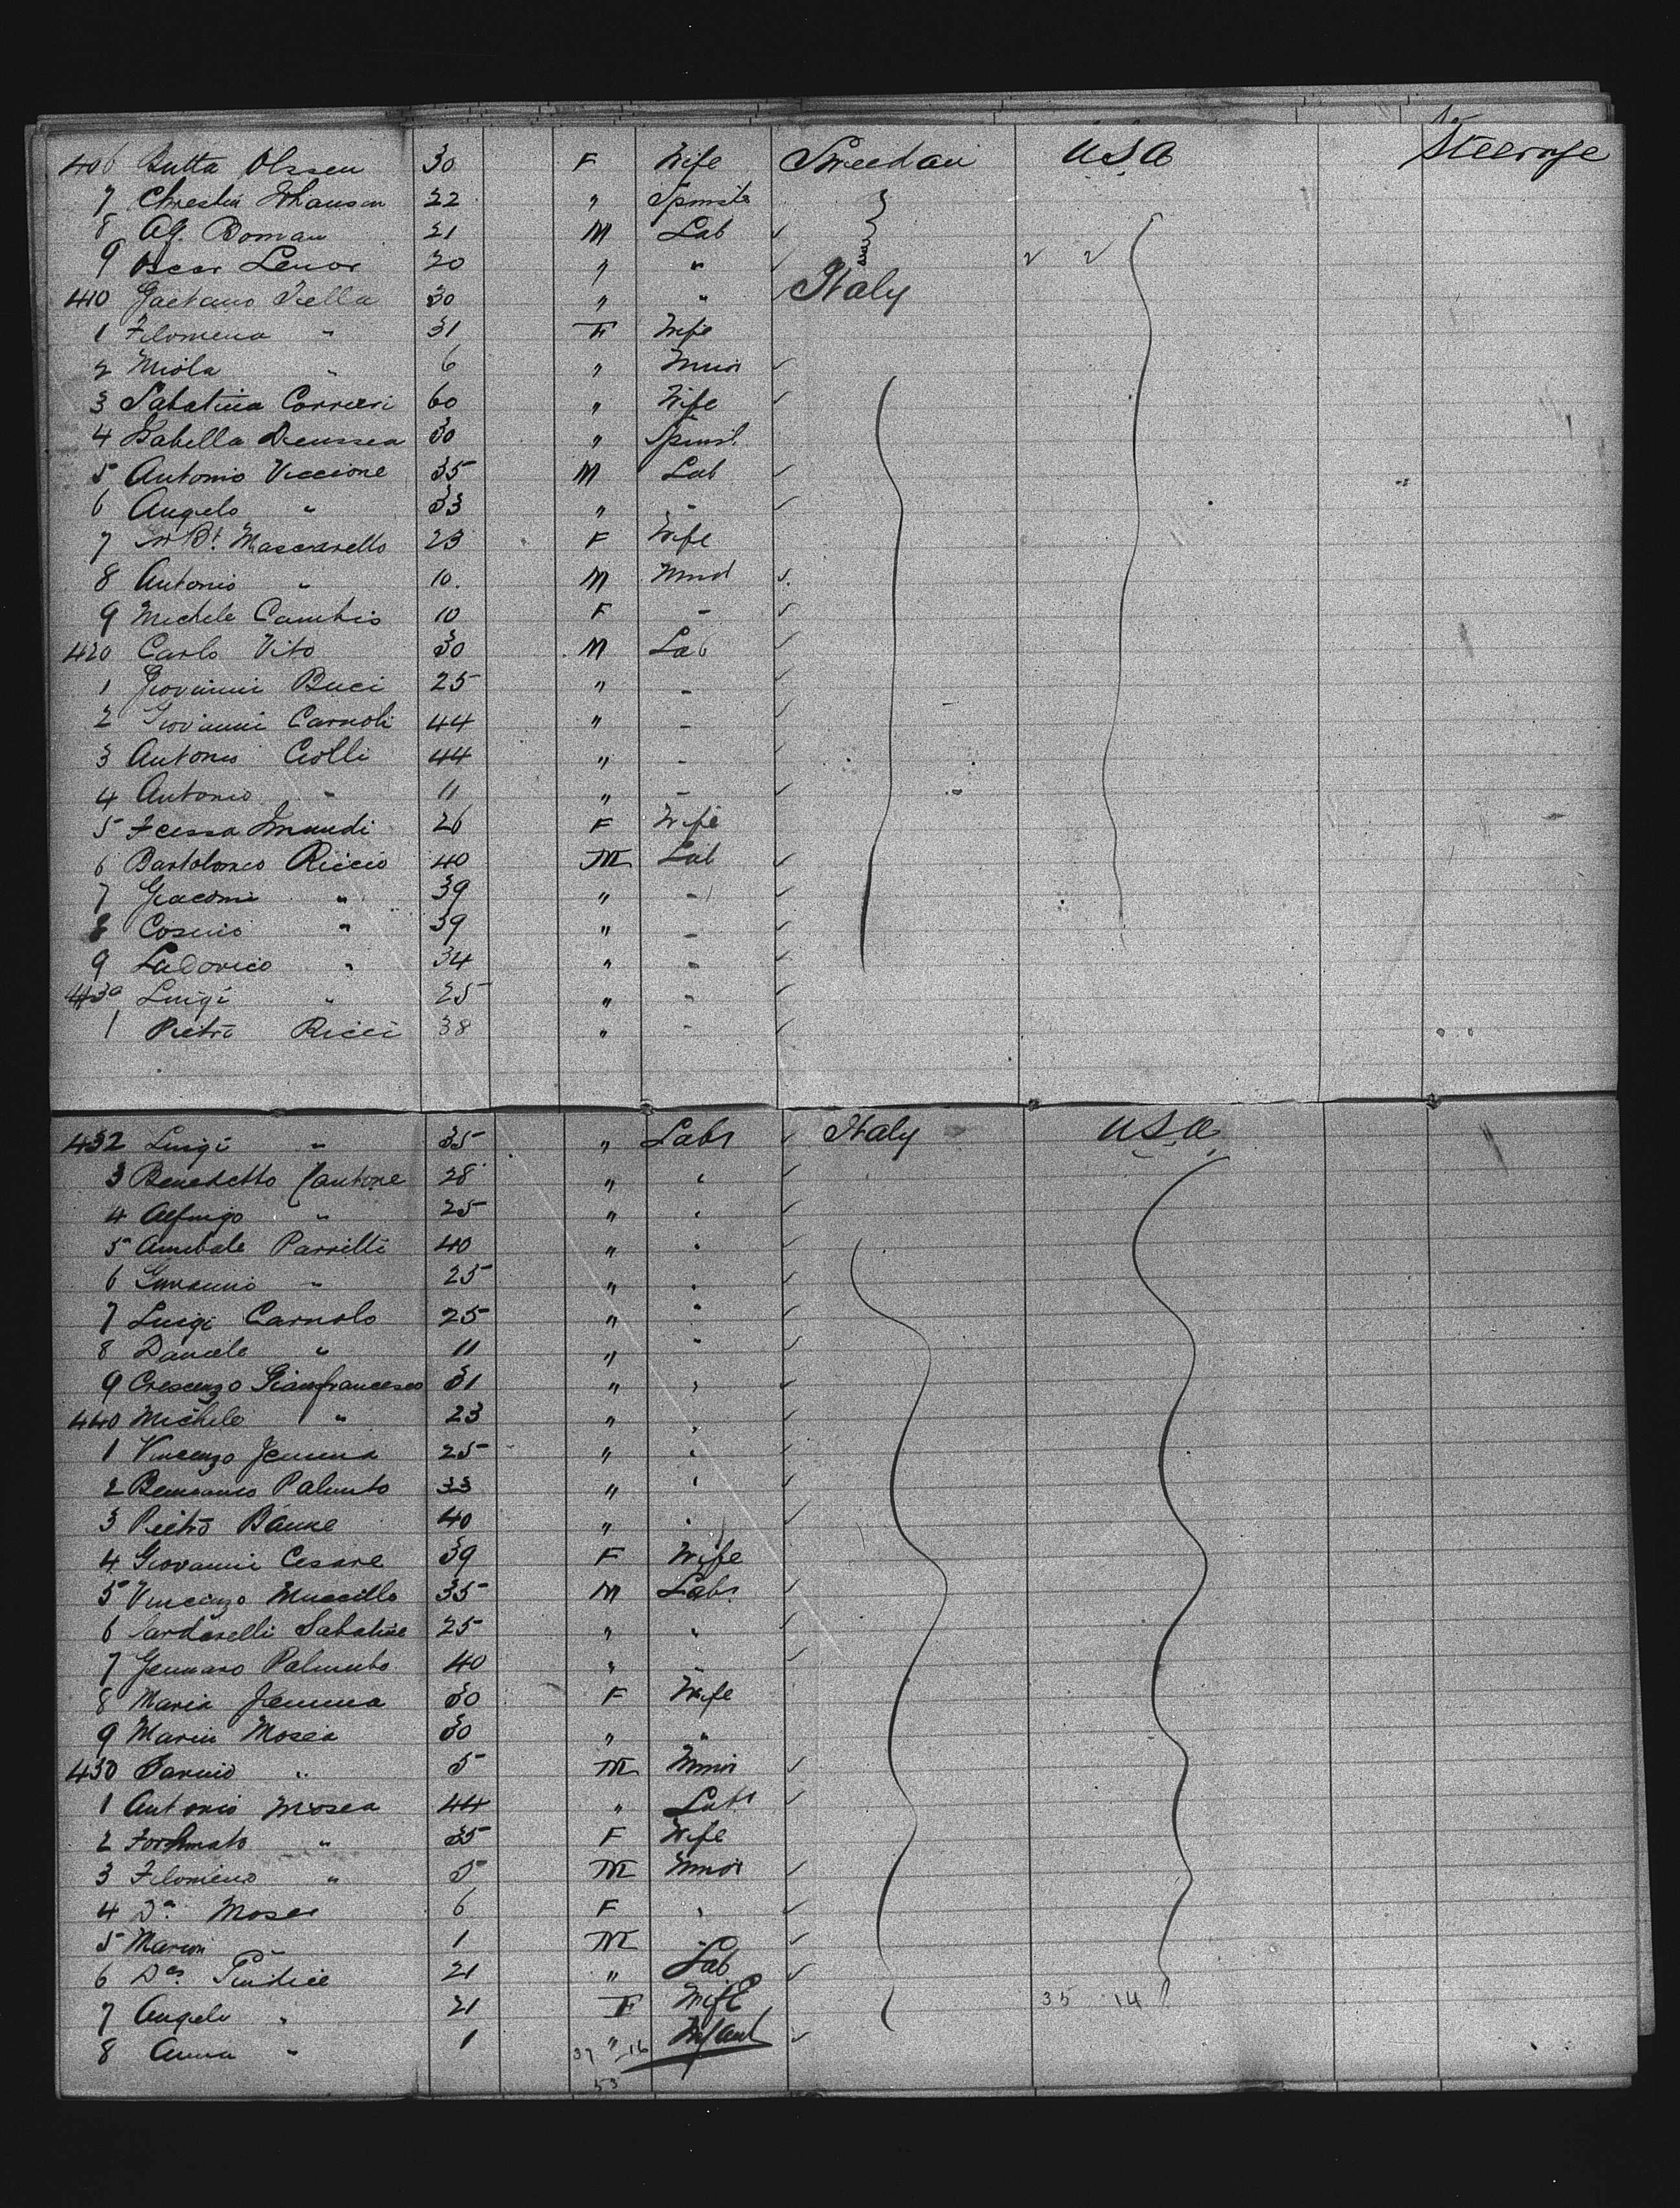 406 Butta Olssen 30 F Wife Sweedan USA Steerage
7 Christin 22 " Spinster
8 Ag. Boman 21 M Lab
9 Oscar Lenor 20 " "
410 Gaetano Viella 30 " " Italy
1 Filomena " 31 F Wife
2 Miola " 6 " Minor
3 Sabatina Corrieri 60 " Wife
4 Isabella 30 " Spinst.
5 Antonio Viccione 35 M Lab
6 Angelo " 33 " "
7 Mascarello 23 F Wife
8 Antonio " 10 M Minor
9 Michele Cambio 10 F "
420 Carlo Vito 30 M Lab
1 Giovanni Buci 25 " "
2 Giovanni Carnoli 44 " "
3 Antonio Ciolli 44 " "
4 Antonio " 11 " "
5 26 F Wife
6 Bartolomeo Riccio 40 M Lab
7 Giacomi " 39 " "
8 Cosmio " 39 " "
9 Ladovico " 34 " "
430 Luigi " 25 " "
1 Pietro Ricci 38 " "
432 Luigi " 35 " Labr Italy USA
3 Benedetto Cantone 28 " "
4 " 25 " "
5 Annibale Parrilli 40 " "
6 " 25 " "
7 Luigi Carnolo 25 " "
8 Daniele " 11 " "
9 Crescenzo Gianfrancesco 31 " "
440 Michele " 23 " "
1 Vincenzo Jemma 25 " "
2 Palunto 33 " "
3 Pietro 40 " "
4 Giovanni Cesare 39 F Wife
5 Vincenzo Muccillo 35 M Labr
6 Sardarelli Sabatine 25 " "
7 Gennaro Palmuto 40 " "
8 Maria Jemma 30 F Wife
9 Maria Mosca 30 " "
450 " 5 M Minor
1 Antonio Mosca 44 " Labr
2 Fortunato " 35 F Wife
3 Filomeno " 5 M Minor
4 Da Mosca 6 F "
5 1 M "
6 21 " Lab
7 Angela " 21 F Wife 35 14
8 Anna " 1 " Infant
37 16
53